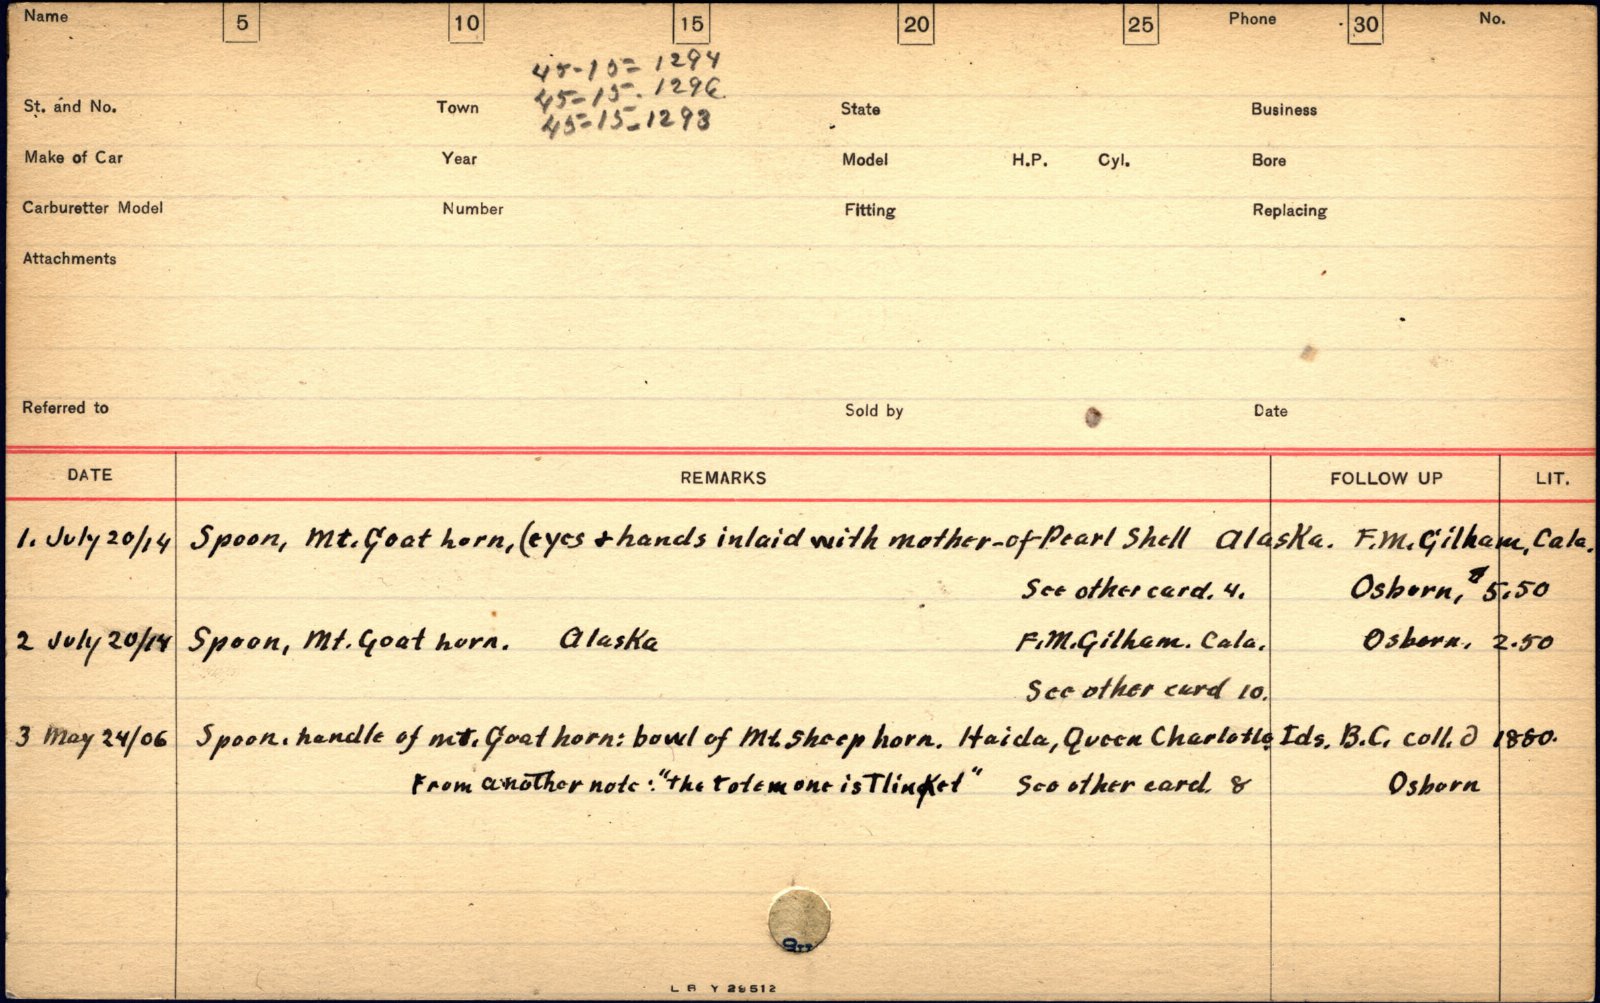 Name 5 10 15 20 25 Phone 30 No.
45-15= 1294
45-15-1296
45-15-1293
St. and No. Town State Business
Make of Car Year Model H.P. Cyl. Bore
Carburetter Model Number Fitting Replacing
Attachments
Referred to Sold by Date
DATE REMARKS FOLLOW UP LIT.
1. July 20/14 Spoon, Mt. Goat horn, (eyes & hands inlaid with mother-of-Pearl Shell Alaska. F.M. Gilham, Cala.
See other card. 4. Osborn, 5.50
2 July 20/14 Spoon, Mt. Goat horn. Alaska F.M. Gilham. Cala. Osborn. 2.50
See other card 10.
3 May 24/06 Spoon. handle of mt. Goat horn: bowl of Mt. Sheep horn. Haida, Queen Charlotte Ids. B.C. coll. 1880.
From another note: "the totem one is Tlinket" See other card. 8 Osborn
L B Y 29512